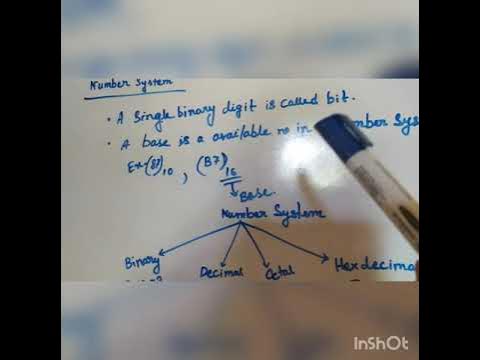 Number System
• A Single binary digit is called bit.
• A base is a available no in
Ex- (87)10 , (B7)16
Base.
Number System
Binary Decimal Octal Hexdecimal
InShOt